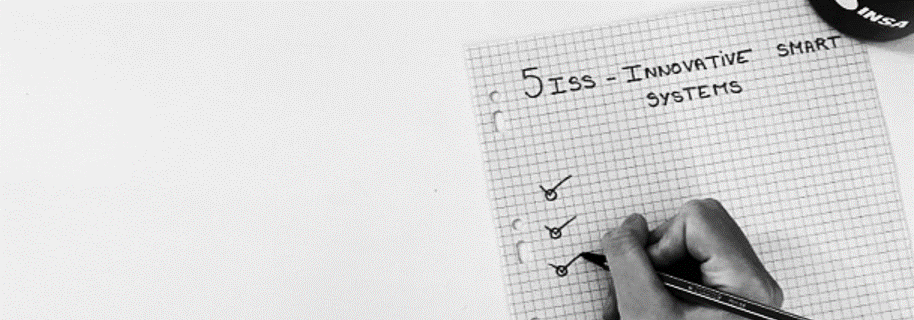 INSA
5ISS - INNOVATIVE SMART
SYSTEMS